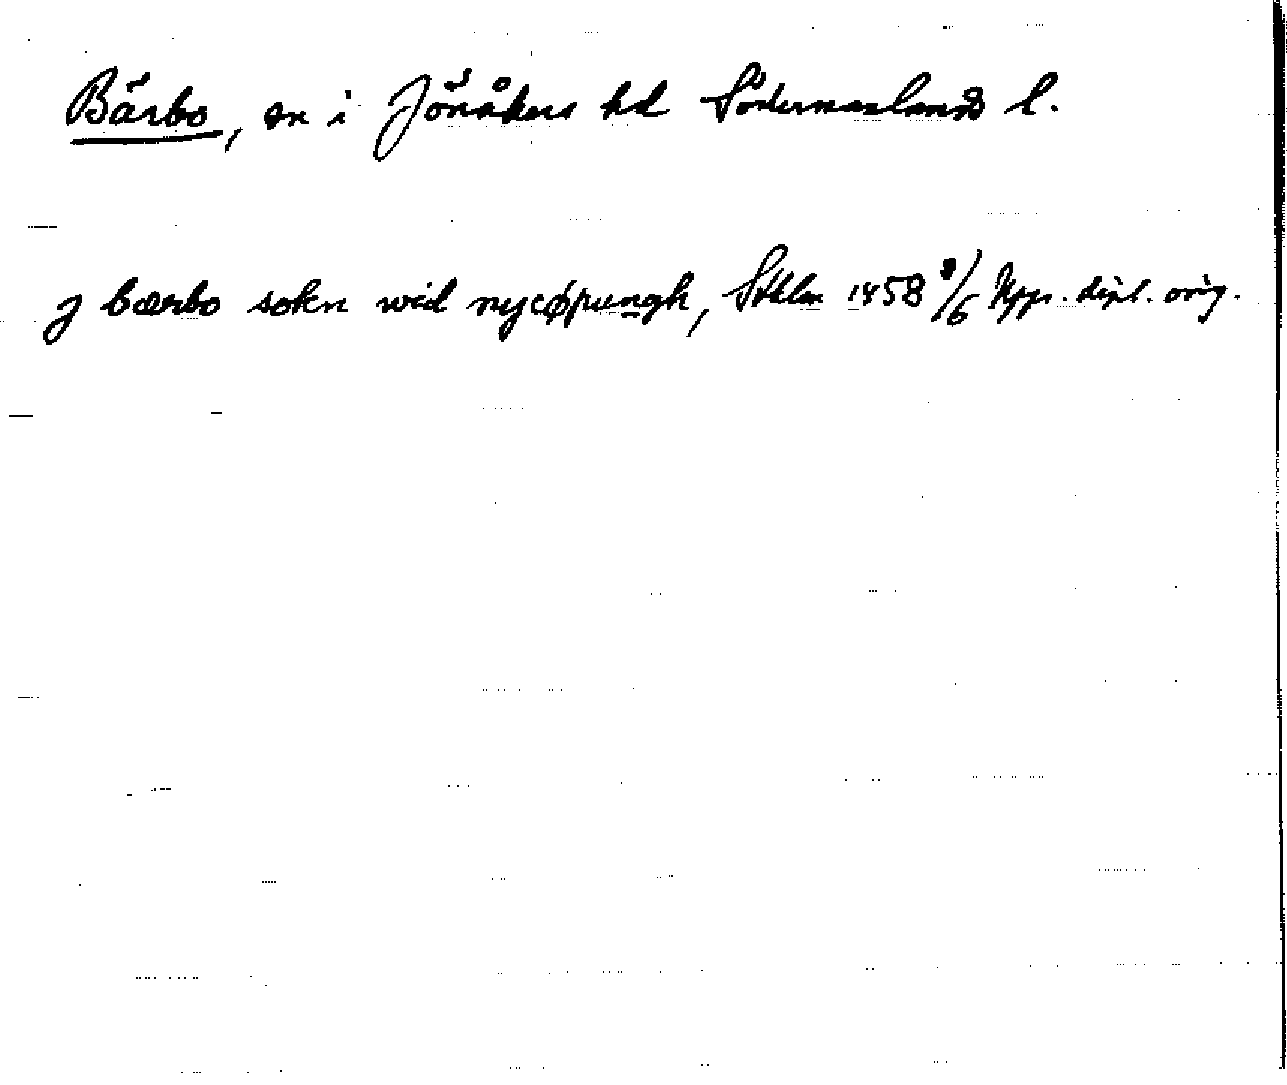 Bärbo, sn i Jönåkers hd Södermanland l.
J bærbo sokn wid nycøpungh, Sthlm 1458 8/6 Upps. dipl. orig.